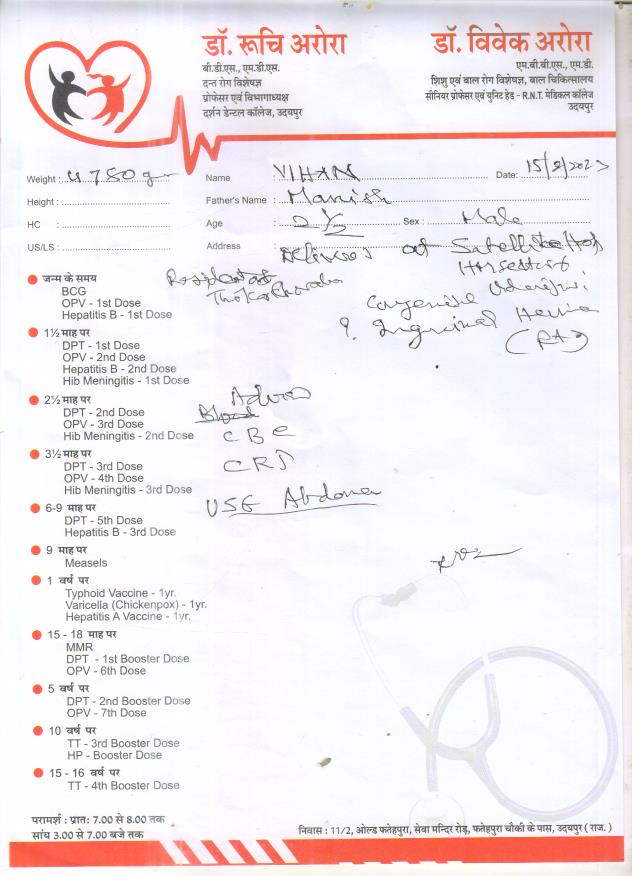 डॉ. रूचि अरोरा
बी.डी.एस., एम.डी.एस.
दन्त रोग विशेषज्ञ
प्रोफेसर एवं विभागाध्यक्ष
दर्शन डेन्टल कॉलेज, उदयपुर
डॉ. विवेक अरोरा
एम.बी.बी.एस., एम.डी.
शिशु एवं बाल रोग विशेषज्ञ, बाल चिकित्सालय
सीनियर प्रोफेसर एवं युनिट हेड - R.N.T. मेडिकल कॉलेज
उदयपुर
Weight : 4750 gm
Name : VIHAN Date: 15/
Height :
Father's Name : Manish
HC :
Age : 2 1/2 Sex : Male
US/LS :
Address : at Satellite Hosp
Hirsedtart
Resident at
Congenital
? Inguinal Hernia
(Rt)
जन्म के समय
BCG
OPV - 1st Dose
Hepatitis B - 1st Dose
1½ माह पर
DPT - 1st Dose
OPV - 2nd Dose
Hepatitis B - 2nd Dose
Hib Meningitis - 1st Dose
2½ माह पर
DPT - 2nd Dose
OPV - 3rd Dose
Hib Meningitis - 2nd Dose
Advice
Blood
CBC
3½ माह पर
DPT - 3rd Dose
OPV - 4th Dose
Hib Meningitis - 3rd Dose
CRP
USG Abdomen
6-9 माह पर
DPT - 5th Dose
Hepatitis B - 3rd Dose
9 माह पर
Measels
1 वर्ष पर
Typhoid Vaccine - 1yr.
Varicella (Chickenpox) - 1yr.
Hepatitis A Vaccine - 1yr.
15 - 18 माह पर
MMR
DPT - 1st Booster Dose
OPV - 6th Dose
5 वर्ष पर
DPT - 2nd Booster Dose
OPV - 7th Dose
10 वर्ष पर
TT - 3rd Booster Dose
HP - Booster Dose
15 - 16 वर्ष पर
TT - 4th Booster Dose
परामर्श : प्रात: 7.00 से 8.00 तक
सांय 3.00 से 7.00 बजे तक
निवास : 11/2, ओल्ड फतेहपुरा, सेवा मन्दिर रोड़, फतेहपुरा चौकी के पास, उदयपुर ( राज. )